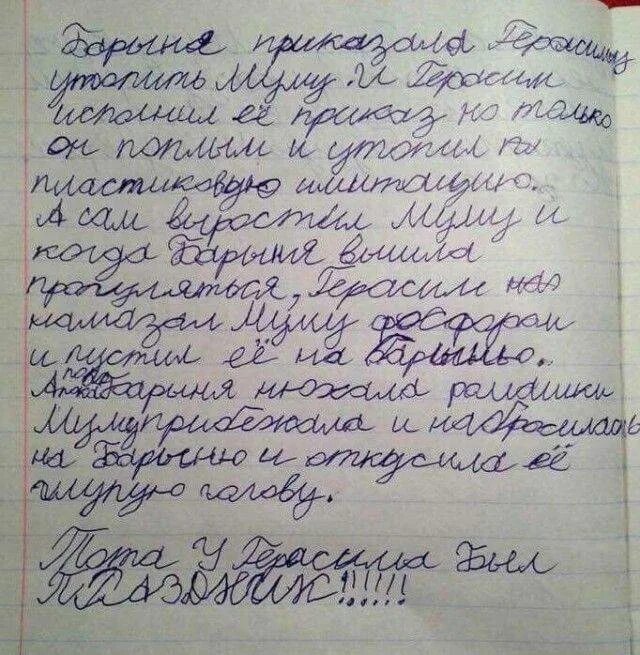 Барыня приказала Герасиму
утопить Муму. И Герасим
исполнил её приказ но только
он поплыл и утопил
пластиковую имитацию.
А сам выростил Муму и
когда Барыня вышла
прогуляться, Герасим
намазал Муму фосфором
и пустил её на Барыньо.
А пока Барыня нюхала ромашки
Муму прибежала и набросилась
на Барыню и откусила её
глупую голову.
Тота У Герасима Был
ПРАЗДНИК!!!!!!